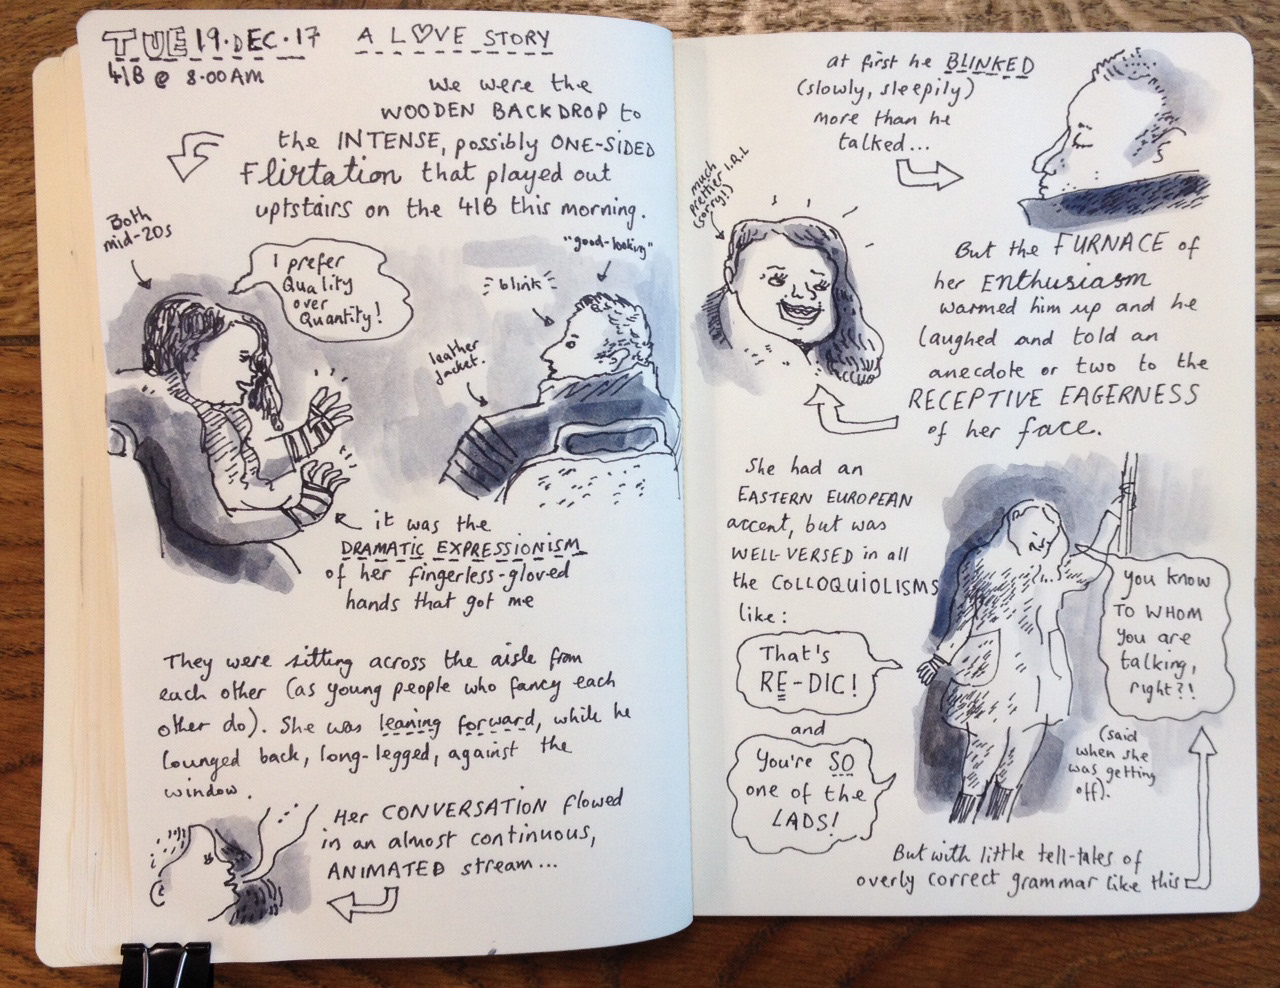 TUE 19·DEC·17 A L♡VE STORY
41B @ 8.00AM
We were the
WOODEN BACKDROP to
the INTENSE, possibly ONE-SIDED
Flirtation that played out
uptstairs on the 41B this morning.
Both
mid-20s
I prefer
Quality
over
Quantity!
"good-looking"
blink
leather
jacket.
it was the
DRAMATIC EXPRESSIONISM
of her fingerless-gloved
hands that got me
They were sitting across the aisle from
each other (as young people who fancy each
other do). She was leaning forward, while he
lounged back, long-legged, against the
window.
Her CONVERSATION flowed
in an almost continuous,
ANIMATED stream...
at first he BLINKED
(slowly, sleepily)
more than he
talked...
much
prettier I.R.L
(sorry!)
But the FURNACE of
her Enthusiasm
warmed him up and he
laughed and told an
anecdote or two to the
RECEPTIVE EAGERNESS
of her face.
She had an
EASTERN EUROPEAN
accent, but was
WELL-VERSED in all
the COLLOQUIOLISMS
like:
That's
RE-DIC!
and
You're SO
one of the
LADS!
you know
TO WHOM
you are
talking,
right?!
(said
when she
was getting
off).
But with little tell-tales of
overly correct grammar like this